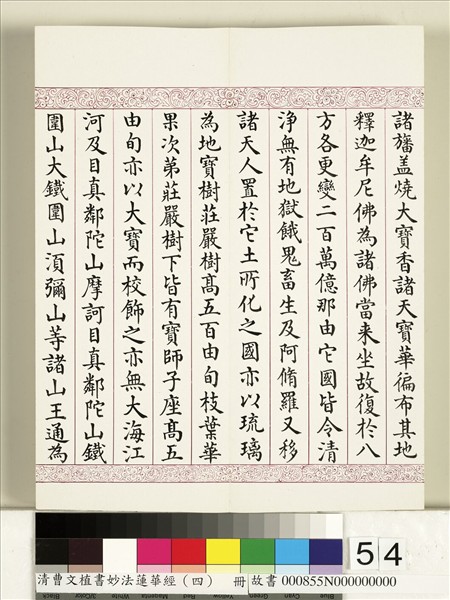 諸旛盖燒大寶香諸天寶華徧布其地
釋迦牟尼佛為諸佛當来坐故復於八
方各更變二百萬億那由它國皆令清
淨無有地獄餓鬼畜生及阿脩羅又移
諸天人置於它土所化之國亦以琉璃
為地寶樹莊嚴樹髙五百由旬枝葉華
果次第莊嚴樹下皆有寶師子座髙五
由旬亦以大寶而校飾之亦無大海江
河及目真鄰陀山摩訶目真鄰陀山鐵
圍山大鐵圍山湏彌山等諸山王通為
54
清曹文植書妙法蓮華經（四） 冊 故書 000855N000000000